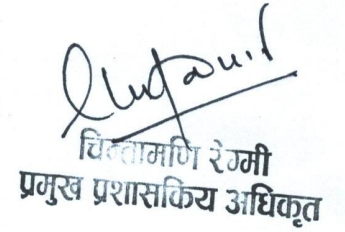 चिन्तामणि रेग्मी
प्रमुख प्रशासकिय अधिकृत